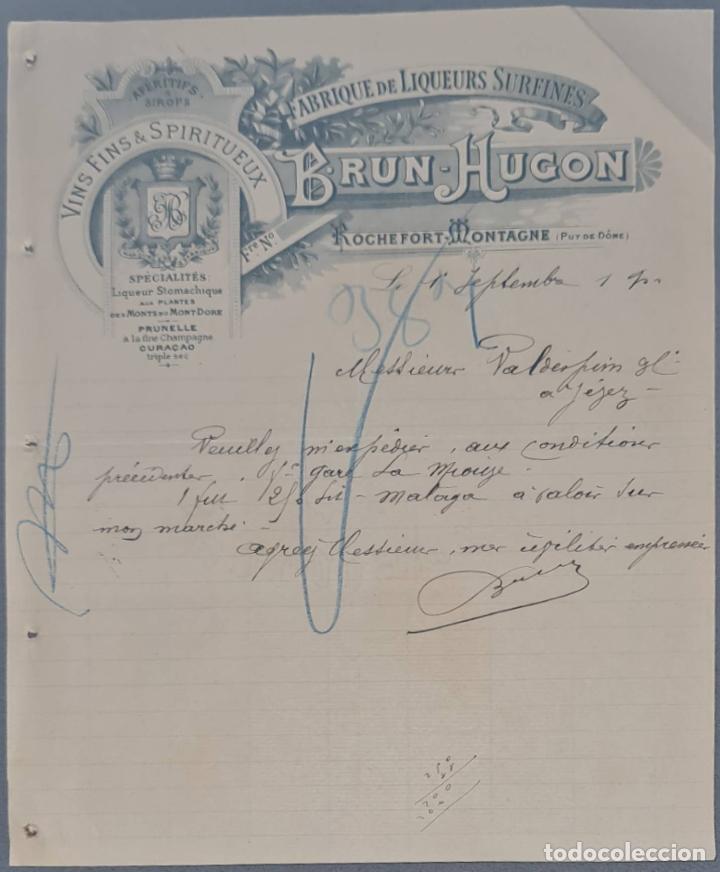 APÉRITIFS
& SIROPS
VINS FINS & SPIRITUEUX
BH
SPÉCIALITÉS:
Liqueur Stomachique
AUX PLANTES
DES MONTS DU MONT-DORE
PRUNELLE
à la fine Champagne
CURAÇAO
triple sec
FABRIQUE DE LIQUEURS SURFINES
BRUN-HUGON
Fre No
ROCHEFORT-MONTAGNE (PUY DE DÔME)
Le 1er Septembre 19
Messieurs Valdespino
a Jérez
Veuillez m'expédier, aux conditions
précédentes, gare La Miouze
1 fut 250 lit - Malaga à valoir sur
mon marché
agréez Messieurs, mes civilités empressées
Brun
250
todocoleccion.net